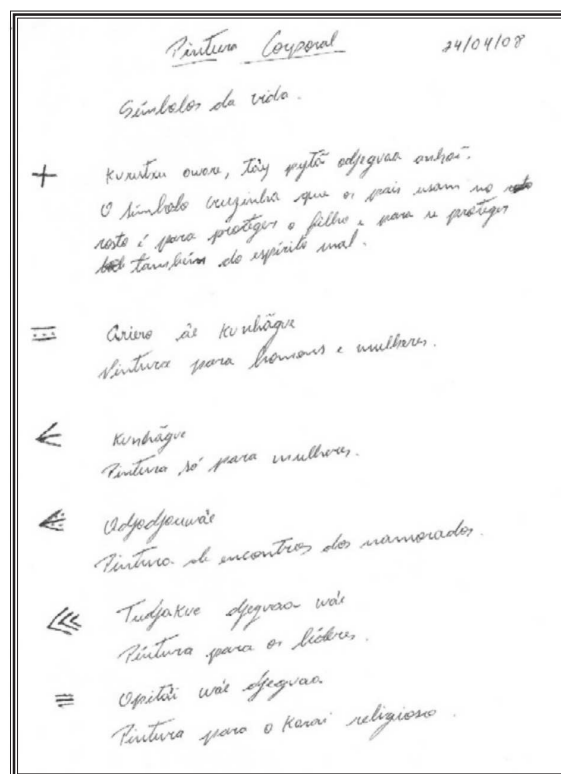 Pintura Corporal 24/04/08
Símbolos da vida.
Kurutxu owore, táy pytã odjegvaa anhoĩ.
O símbolo cruzinha que os pais usam no
rosto é para proteger o filho e para se proteger
também do espírito mal.
Ariero áe Kunhãgve
Pintura para homens e mulheres.
Kunhãgve
Pintura só para mulheres.
Odjodjouwáe
Pintura de encontros dos namorados.
Tudjakve djegvaa wáe
Pintura para os líderes.
Opitái wáe djegvaa
Pintura para o Karai religioso.